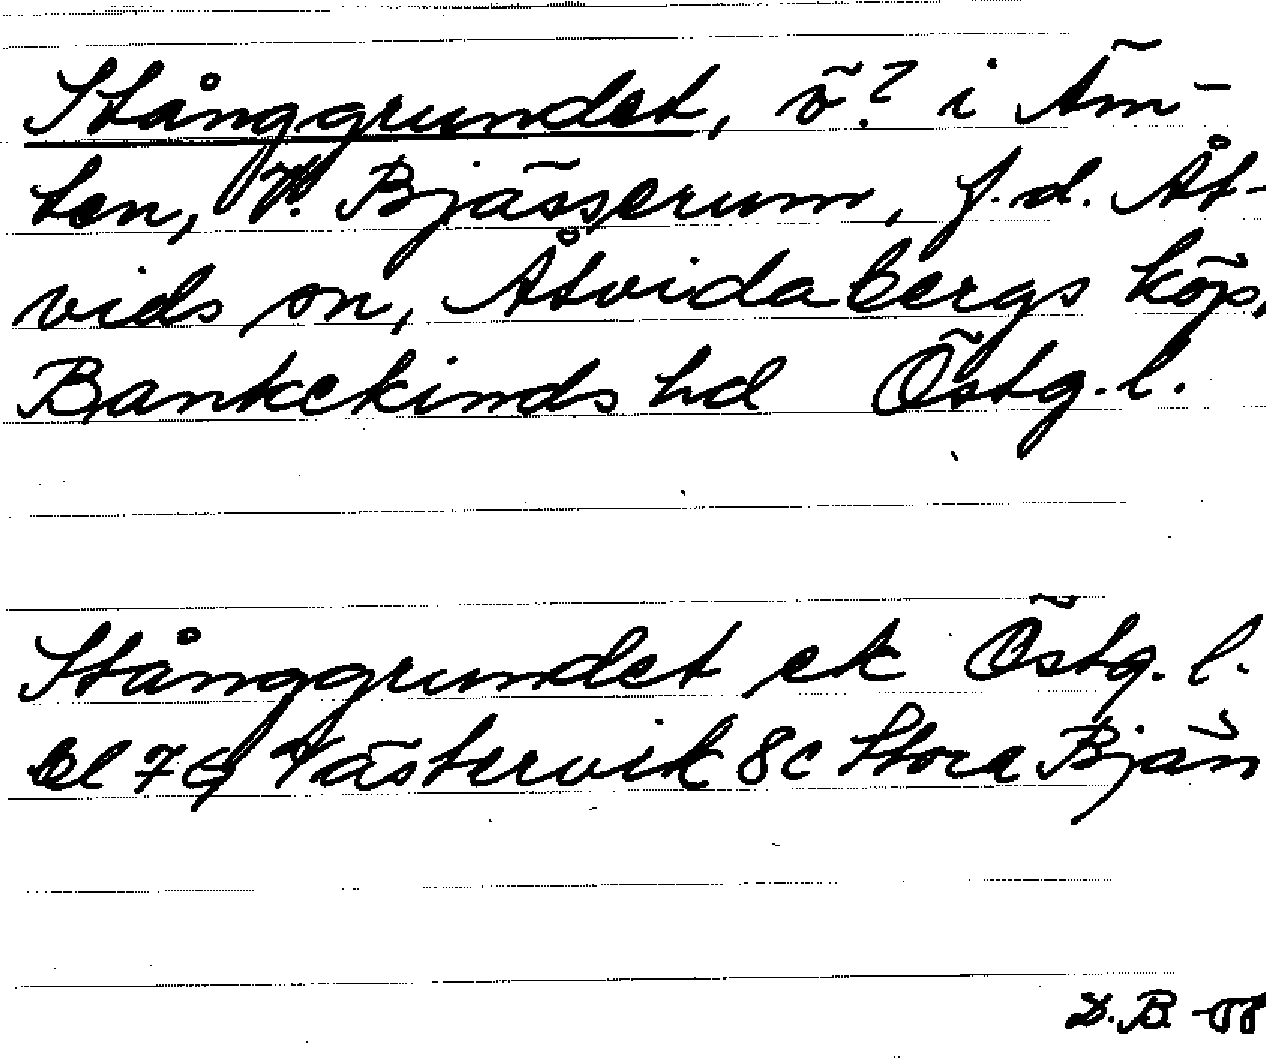 Stånggrundet, ö? i Äm-
ten, V. Bjässerum, f.d. Åt-
vids sn, Åtvidabergs köp,
Bankekinds hd Östg.l.
Stånggrundet ek Östg. l.
bl 7G Västervik 8c Stora Bjän
D.B